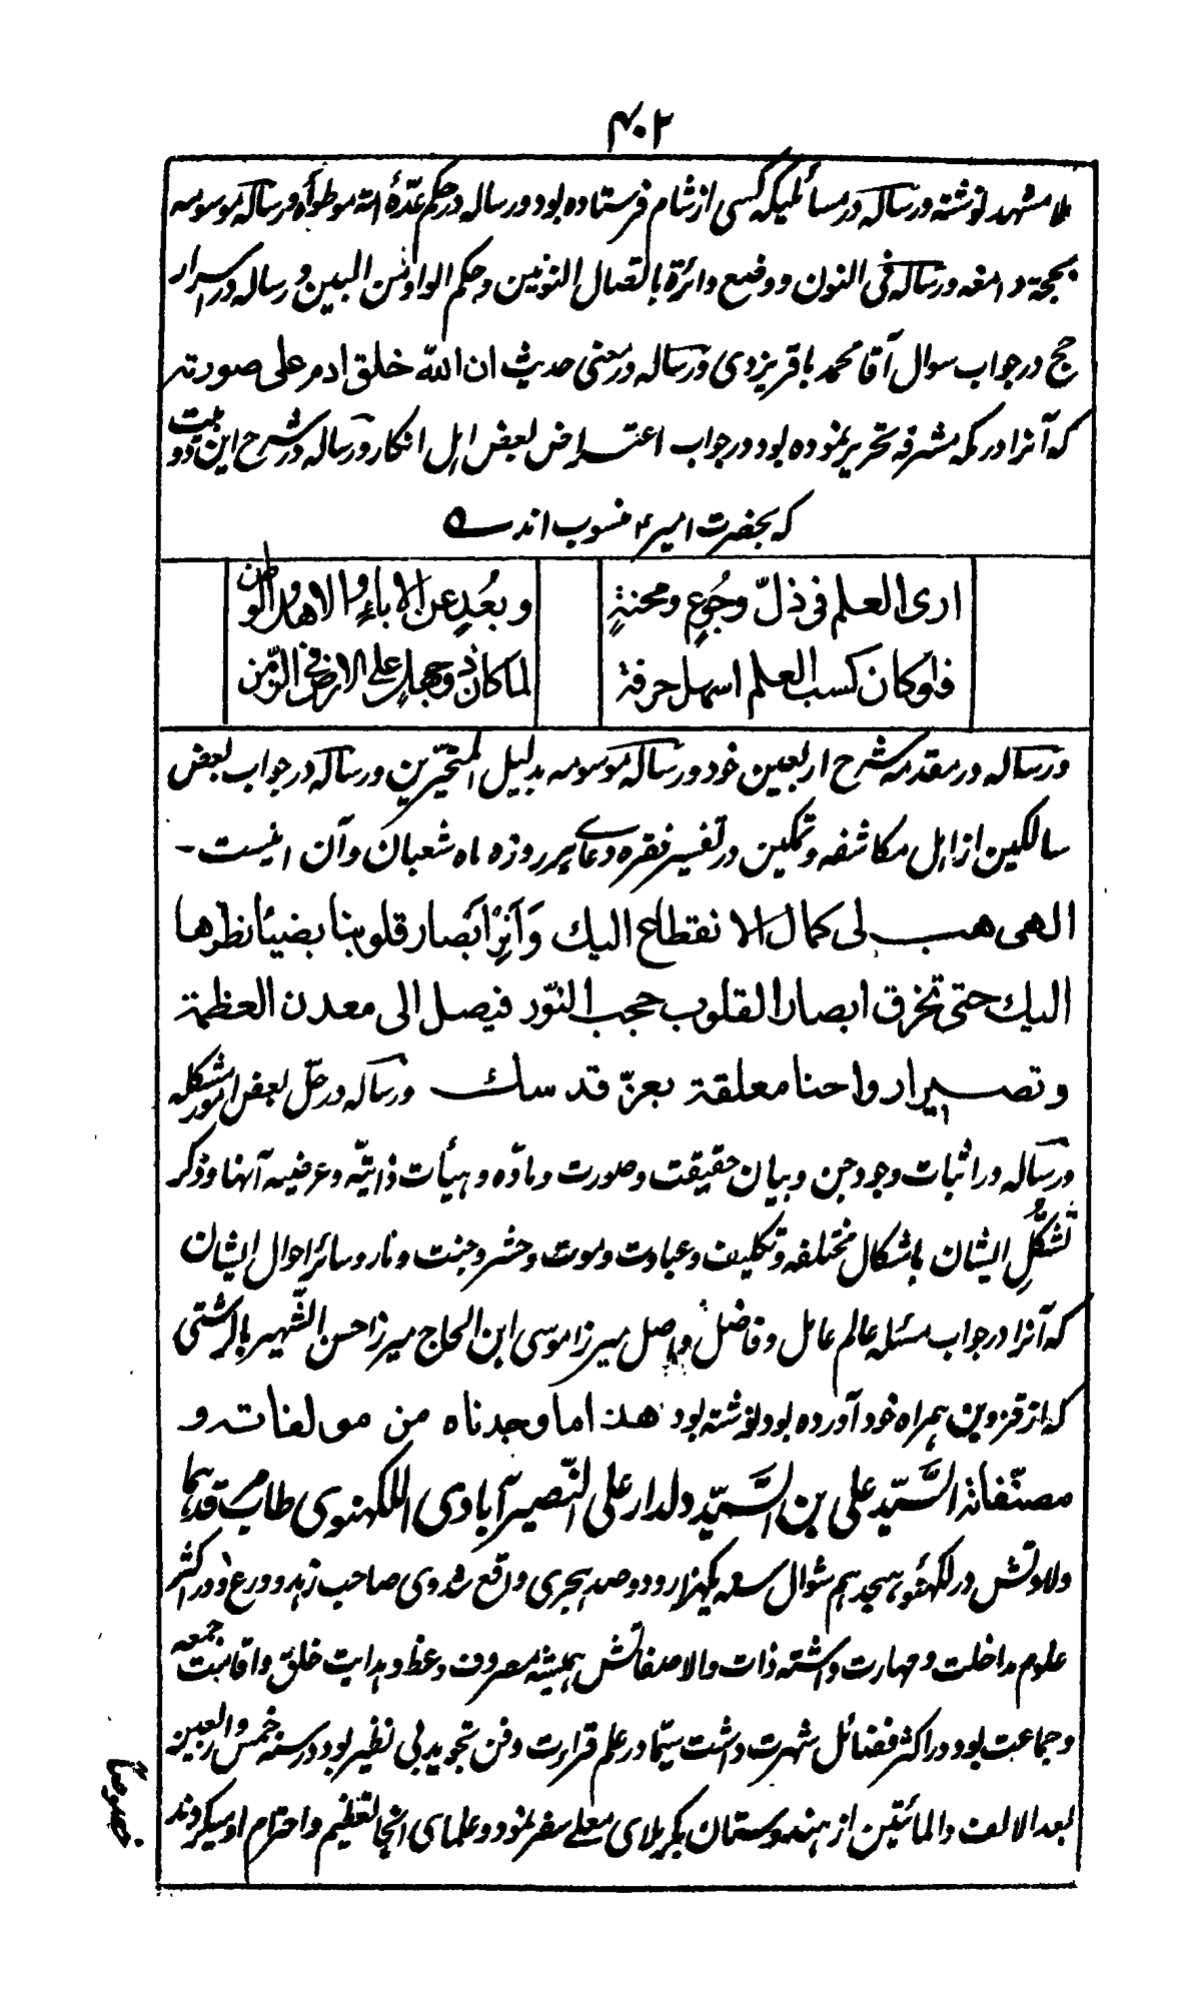 ۴۰۲
بلا مشهد نوشته و رساله در مسائلیکه کسی از شام فرستاده بود و رساله در حکم عدّۀ امهٔ موطوأه و رساله موسومه
بحجة دامغه و رساله فی النون و وضع دائرة باتصال النونین و حکم الواو من البین و رساله در اسرار
حج در جواب سوال آقا محمد باقر یزدی و رساله در معنی حدیث ان الله خلق ادم علی صورته
که آنرا در مکه مشرفه تحریر نموده بود در جواب اعتراض بعض اهل انکار و رساله در شرح این دو بیت
که بحضرت امیر۴ منسوب اند
اری العلم فی ذلّ وجُوعٍ ومحنةٍ
وبُعدٍ عن الاباءِ والاهل والوطن
فلو کان کسب العلم اسهل حرفة
لما کان ذوجهل علی الارض فی الزّمن
و رساله در مقدمه شرح اربعین خود و رساله موسومه بدلیل المتحیّرین و رساله در جواب بعض
سالکین از اهل مکاشفه و تمکین در تفسیر فقره دعای هر روزه ماه شعبان و آن اینست -
الهی هب لی کمال الانقطاع الیك وَاَنِرْ اَبصار قلوبنا بضیئا نظرها
الیك حتی تخرق ابصار القلوب حجب النّور فیصل الی معدن العظمة
و تصیر ارواحنا معلقة بعزّ قدسك و رساله در حلّ بعض امور مشکله
و رساله در اثبات وجود جن و بیان حقیقت و صورت و مادّه و هیأت ذاتیّه و عرضیه آنها و ذکر
تَشَکُّلِ ایشان باشکال مختلفه و تکلیف و عبادت و موت و حشر و جنت و نار و سائر احوال ایشان
که آنرا در جواب مسئله عالم عامل و فاضل واصل میرزا موسی ابن الحاج میرزا حسن الشّهیر بالرشتی
که از قزوین همراه خود آورده بود نوشته بود هذا ما وجدناه من مولفاته و
مصنّفاته السَّیّد علی بن السَّیّد دلدار علی النّصیرآبادی اللکهنوی طاب رمسهما
ولادتش در لکهنؤ هیجدهم شوال سنه یکهزار و دو صد هجری واقع شد وی صاحب زهد و ورع و در اکثر
علوم مداخلت و مهارت داشته ذات والا صفاتش همیشه مصروف وعظ و هدایت خلق و اقامت جمعه
و جماعت بود در اکثر فضائل شهرت داشت سیّما در علم قرارت و فن تجوید بی نظیر بود در سنه خمس و اربعین
بعد الالف والمائتین از هندوستان بکربلای معلی سفر نمود و علمای آنجا تعظیم و احترام او میکردند
خصوصاً